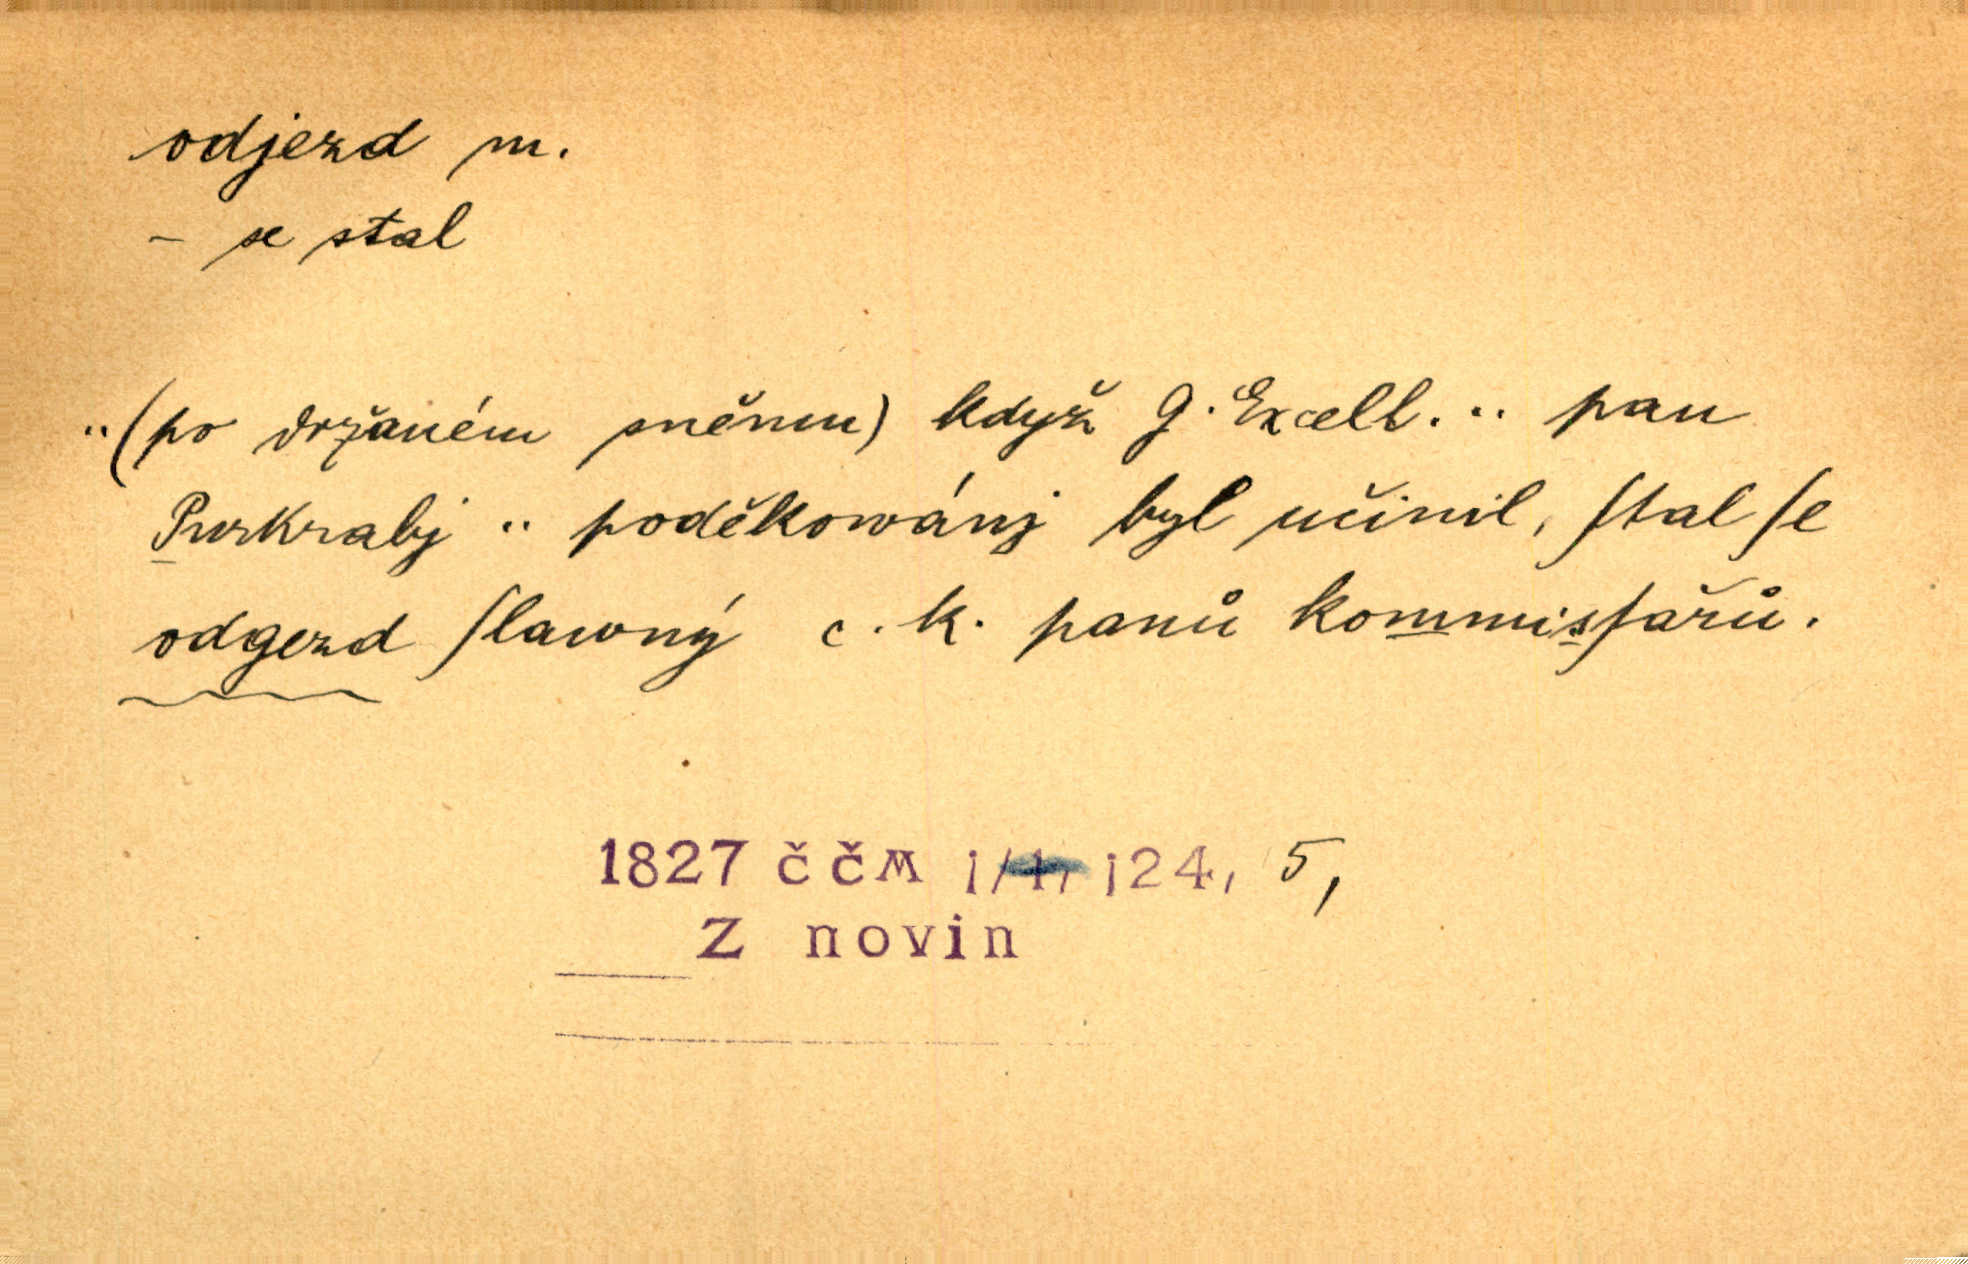 odjezd m.
– se stal
"(po držaném sněmu) když G. Excell. .. pan
Purkrabj .. poděkowánj byl učinil, ſtal ſe
odgezd ſlawný c. k. panů kommisſařů.
1827 ČČM j/1, j24, 5,
Z novin